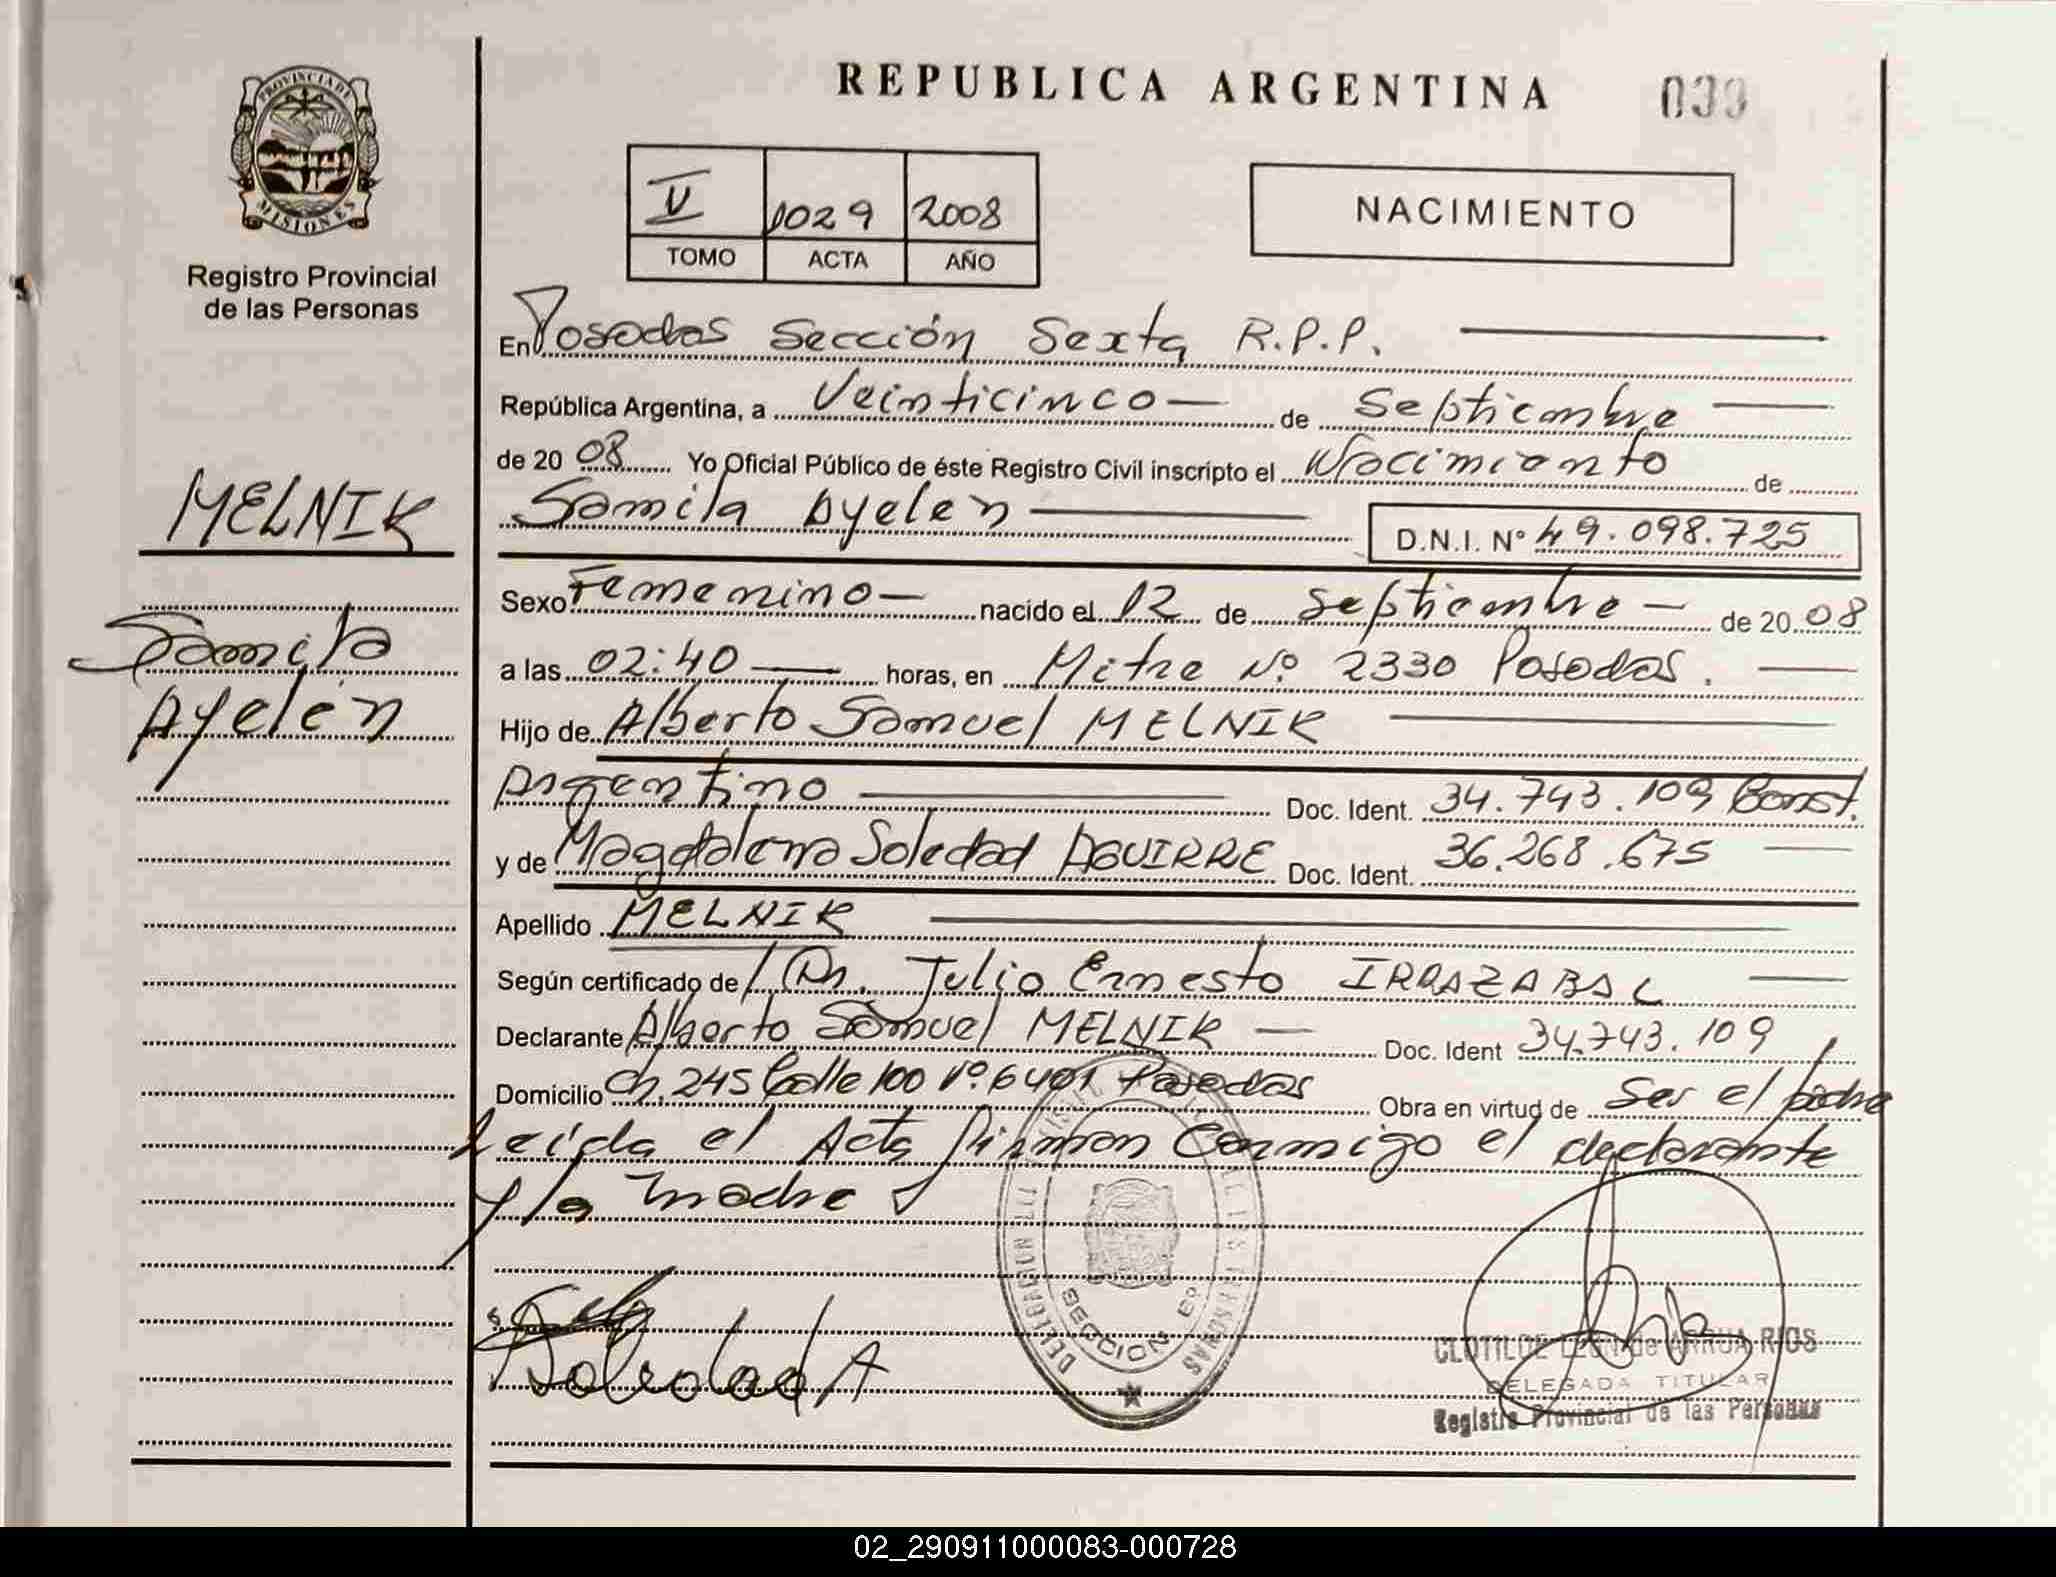 PROVINCIA DE
MISIONES
Registro Provincial
de las Personas
MELNIK
Samila
Ayelén
REPUBLICA ARGENTINA 039
V 1029 2008
TOMO ACTA AÑO
NACIMIENTO
En Posadas Sección Sexta R.P.P.
República Argentina, a Veinticinco — de Septiembre —
de 20 08 Yo Oficial Público de éste Registro Civil inscripto el Nacimiento de
Samila Ayelen — D.N.I. Nº 49.098.725
Sexo Femenino — nacido el 12 de Septiembre — de 20 08
a las 02:40 — horas, en Mitre Nº 2330 Posadas. —
Hijo de Alberto Samuel MELNIK —
Argentino — Doc. Ident. 34.743.109 Const.
y de Magdalena Soledad AGUIRRE Doc. Ident. 36.268.675 —
Apellido MELNIK —
Según certificado de Dr. Julio Ernesto IRRAZABAL —
Declarante Alberto Samuel MELNIK — Doc. Ident 34.743.109
Domicilio Ch. 245 Calle 100 Nº 6401 Posadas Obra en virtud de Ser el padre
Leída el Acta firman Conmigo el declarante
y la madre
Soledad A
DELEGACION
DE LAS PERSONAS
SECCION 6º
CLOTILDE LEON de ARRUA RIOS
DELEGADA TITULAR
Registro Provincial de las Personas
02_290911000083-000728